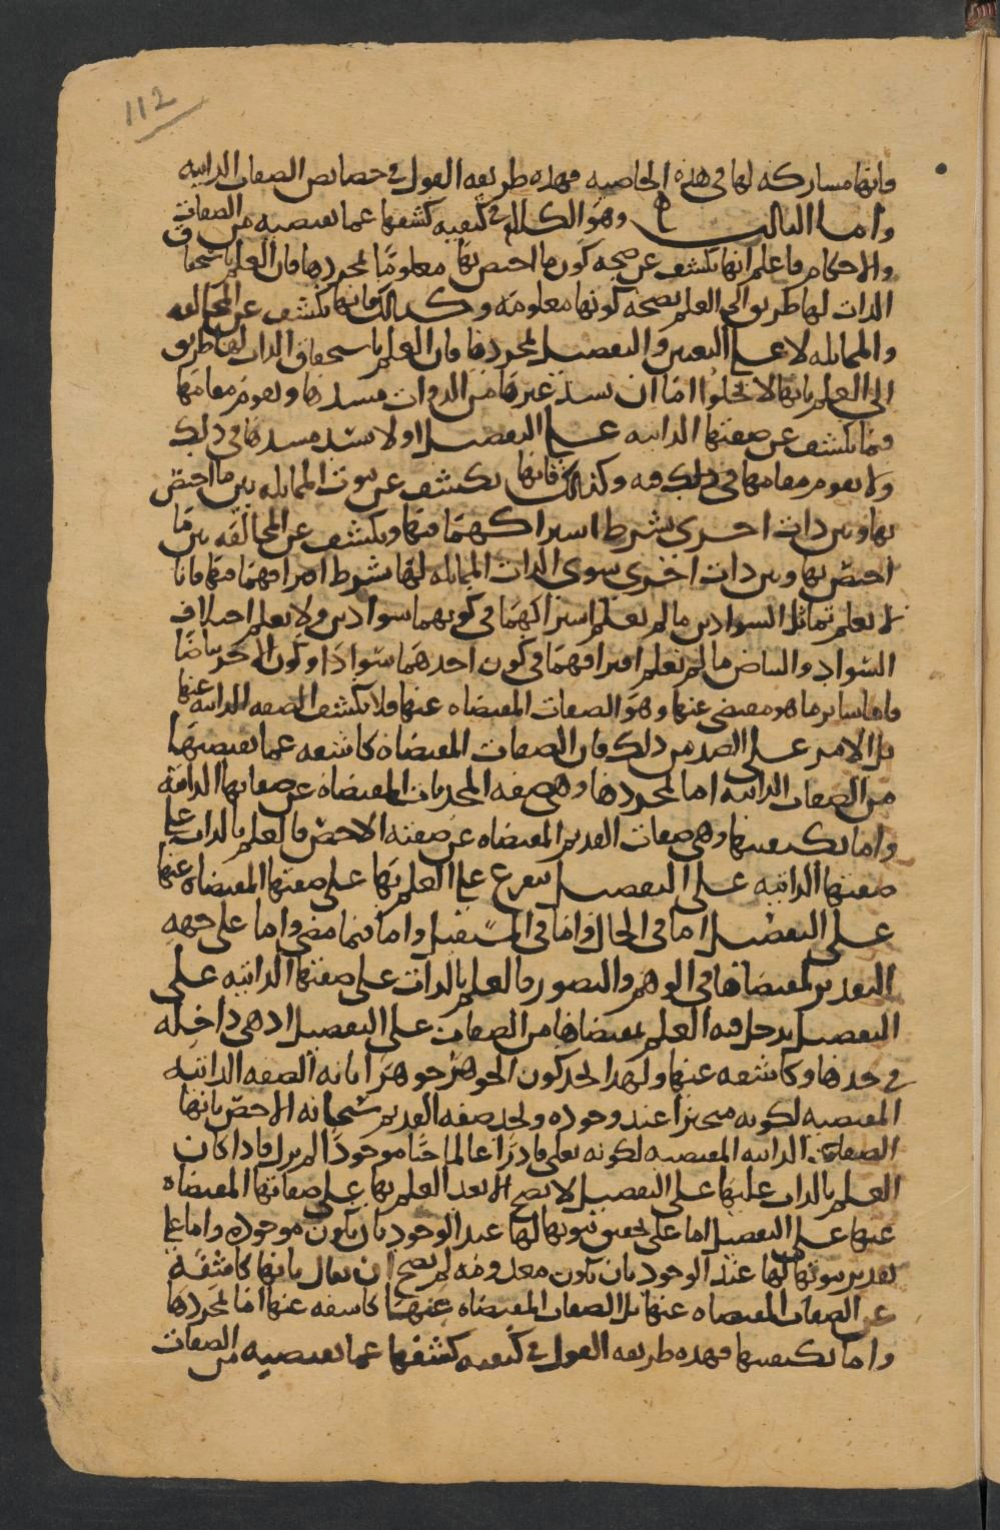 112
فانها مشاركه لها فى هذه الخاصيه فهذه طريقه القول فى خصائص الصفات الذاتيه
واما الثالث وهو الكلام فى كيفيه كشفها عما تقتضيه من الصفات
والاحكام فاعلم انها تكشف عن صحه كون ما اختص بها معلومًا لمجردها فان العلم باستحقاق
الذات لها طريق الى العلم بصحه كونها معلومه وكذلك فانها تكشف عن المخالفه
والمماثله لا على التعيين والتفصيل لمجردها فان العلم باستحقاق الذات لها طريق
الى العلم بانها لا تخلوا اما ان يسد غيرها من الذوات مسدها ويقوم مقامها
فيما يكشف عن صفتها الذاتيه على التفصيل او لا يسد مسدها فى ذلك
ولا يقوم مقامها فى ذلك فيه وكذلك فانها تكشف عن ثبوت المماثله بين ما اختص
بها وبين ذات اخرى بشرط اشتراكهما فيها ويكشف عن المخالفه بين ما
اختص بها وبين ذات اخرى سوى الذات المماثله لها بشرط افتراقهما فيها فانا
لا نعلم تماثل السوادين ما لم نعلم اشتراكهما فى كونهما سوادين ولا نعلم اختلاف
السواد والبياض ما لم نعلم افتراقهما فى كون احدهما سوادًا وكون الاخر بياضًا
فاما سائر ما هو مقتضى عنها وهو الصفات المقتضاه عنها فلا تكشف الصفه الذاتيه عنها
بل الامر على الضد من ذلك فان الصفات المقتضاه كاشفه عما يقتضيها
من الصفات الذاتيه اما لمجردها وهى صفه المحدثات المقتضاه عن صفاتها الذاتيه
واما بكيفيتها وهى صفات القديم المقتضاه عن صفته الاخص فالعلم بالذات على
صفتها الذاتيه على التفصيل يتفرع على العلم بها على صفتها المقتضاه عنها
على التفصيل اما فى الحال واما فى المستقبل واما فيما مضى واما على جهه
التقدير لمقتضاها فى الوهم والتصور فالعلم بالذات على صفتها الذاتيه على
التفصيل يدخل فيه العلم بمقتضاها من الصفات على التفصيل اذ هى داخله
فى حدها وكاشفه عنها ولهذا يحد كون الجوهر جوهرًا بانه الصفه الذاتيه
المقتضيه لكونه متحيزًا عند وجوده ويحد صفه القديم سبحانه الاخص بانها
الصفه الذاتيه المقتضيه لكونه تعلى قادرًا عالمًا حيًا موجودًا لم يزل فاذا كان
العلم بالذات عليها على التفصيل لا يصح الا بعد العلم بها على صفاتها المقتضاه
عنها على التفصيل اما على تحقيق ثبوتها لها عند الوجود بان يكون موجوده واما على
تقدير ثبوتها لها عند الوجود بان يكون معدومه لم يصح ان يقال بانها كاشفه
عن الصفات المقتضاه عنها بل الصفات المقتضاه عنها كاشفه عنها اما لمجردها
واما بكيفيتها فهذه طريقه القول فى كيفيه كشفها عما تقتضيه من الصفات